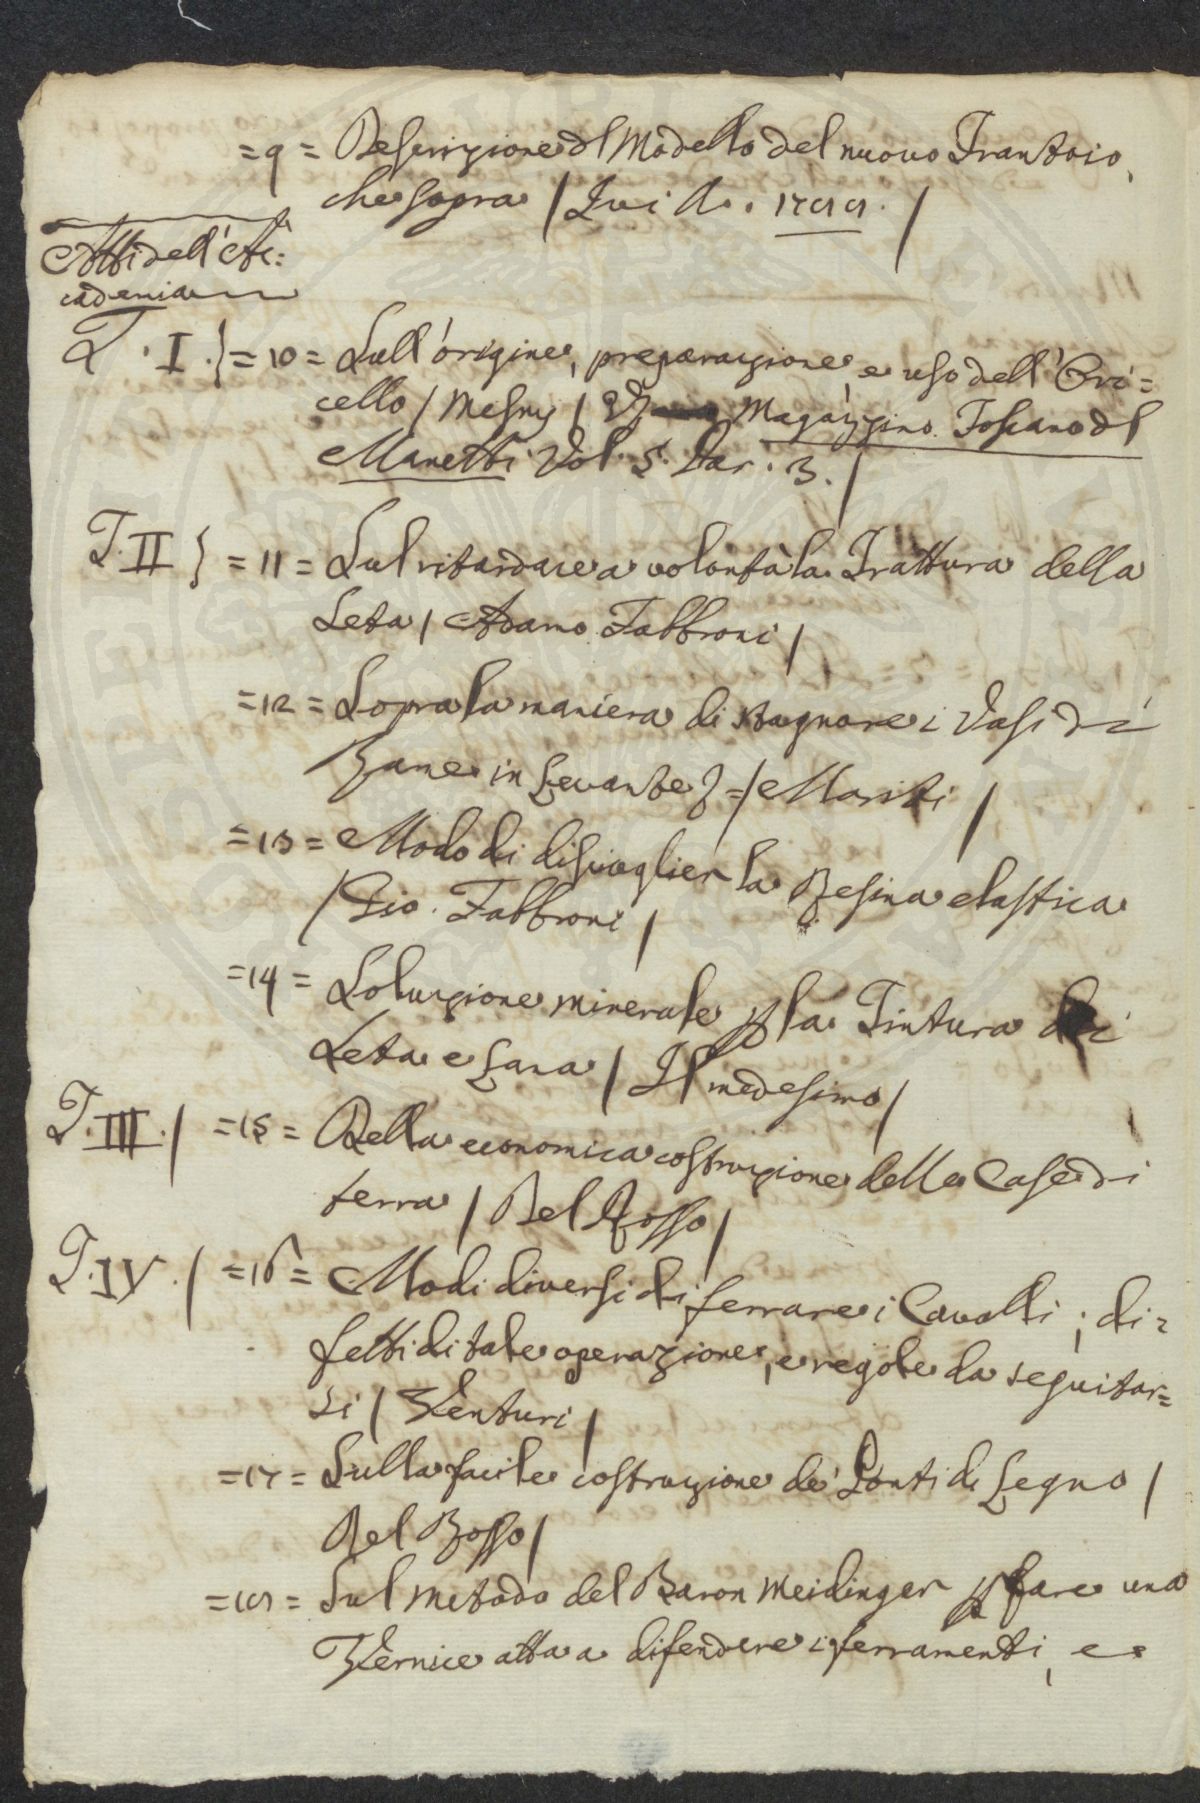 =9= Descrizione dl Modello del nuovo Frantoio,
che sopra / Ivi A. 1788. /
Atti dell'Ac:
cademia
T. I. } =10= Sull'origine, preparazione, e uso dell'Ori=
cello / Mesny / Magazzino Toscano dl
Manetti Vol. 5. Par. 3. /
T. II } =11= Sul ritardare a volontà la Trattura della
Seta / Adamo Fabbroni /
=12= Sopra la maniera di stagnare i Vasi di
Rame in Levante = / Mariti /
=13= Modo di discioglier la Resina elastica
/ Gio. Fabbroni /
=14= Soluzione minerale p la Tintura di
Seta e Lana / Il medesimo /
T. III. / =15= Della economica costruzione delle Case di
terra / Del Rosso /
T. IV. / =16= Modi diversi di ferrare i Cavalli; di=
fetti di tale operazione, e regole da seguitar=
si / Venturi /
=17= Sulla facile costruzione de' Ponti di Legno /
Del Rosso /
=18= Sul metodo del Baron Meidinger p fare una
Vernice atta a difendere i ferramenti, e